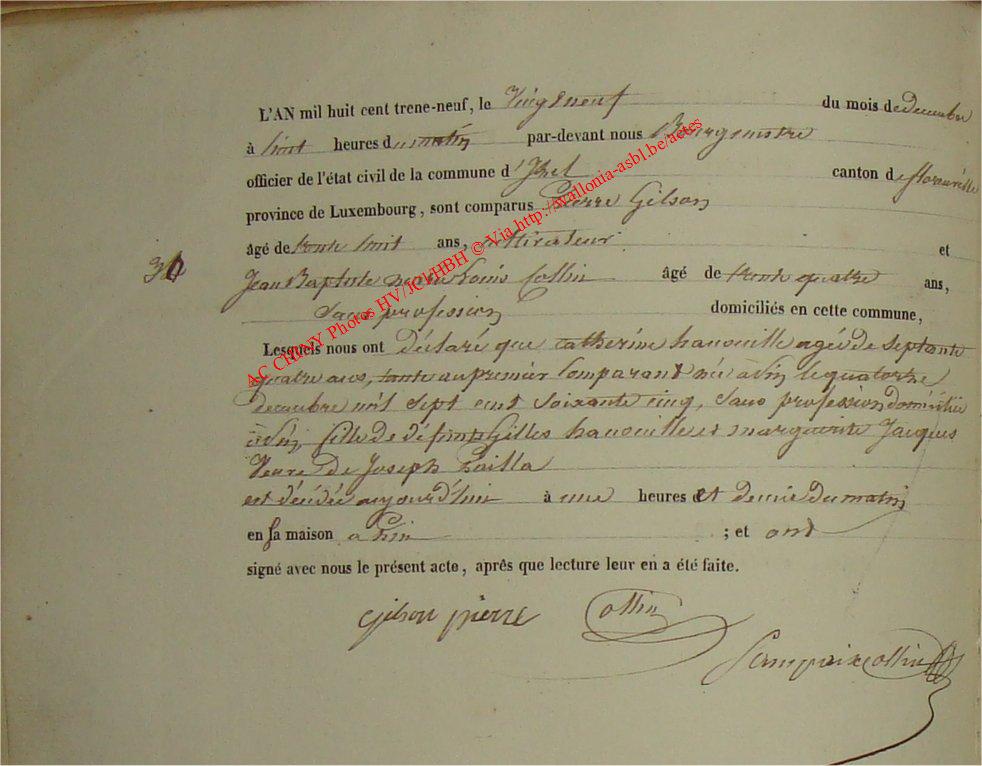 L'AN mil huit cent trene-neuf, le Vingt neuf du mois de decembre
à huit heures du matin par-devant nous Bourgmestre
officier de l'état civil de la commune d'Izel canton de florenville
province de Luxembourg, sont comparus Pierre Gilson
âgé de trente huit ans, cultivateur et
Jean Baptiste marie Louis Collin âgé de trente quatre ans,
Sans profession domiciliés en cette commune,
Lesquels nous ont déclaré que catherine hanouille agée de septante
quatre ans, tante au premier Comparant née a le quatorze
decembre mil sept cent soixante cinq, sans profession domiciliée
fille de défunts Gilles hanouille et marguerite Jacques
Veuve de Joseph
est décédée aujourd'hui à une heures et demie du matin
en sa maison a ; et ont
signé avec nous le présent acte, après que lecture leur en a été faite.
gilson pierre Collin
Collin
AC CHINY Photos HV/JCVHBH © Via http://wallonia-asbl.be/actes